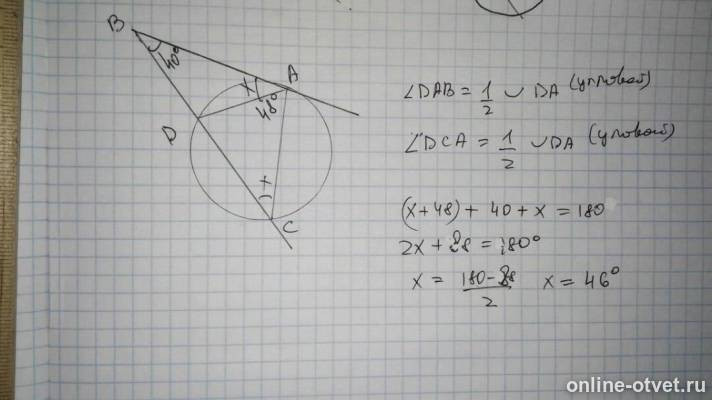 B
40°
A
x
48°
D
x
C
∠DAB = 1/2 ∪ DA (угловой)
∠DCA = 1/2 ∪DA (угловой)
(x+48) + 40 + x = 180
2x + 88 = 180°
x = 180-88/2 x = 46°
online-otvet.ru